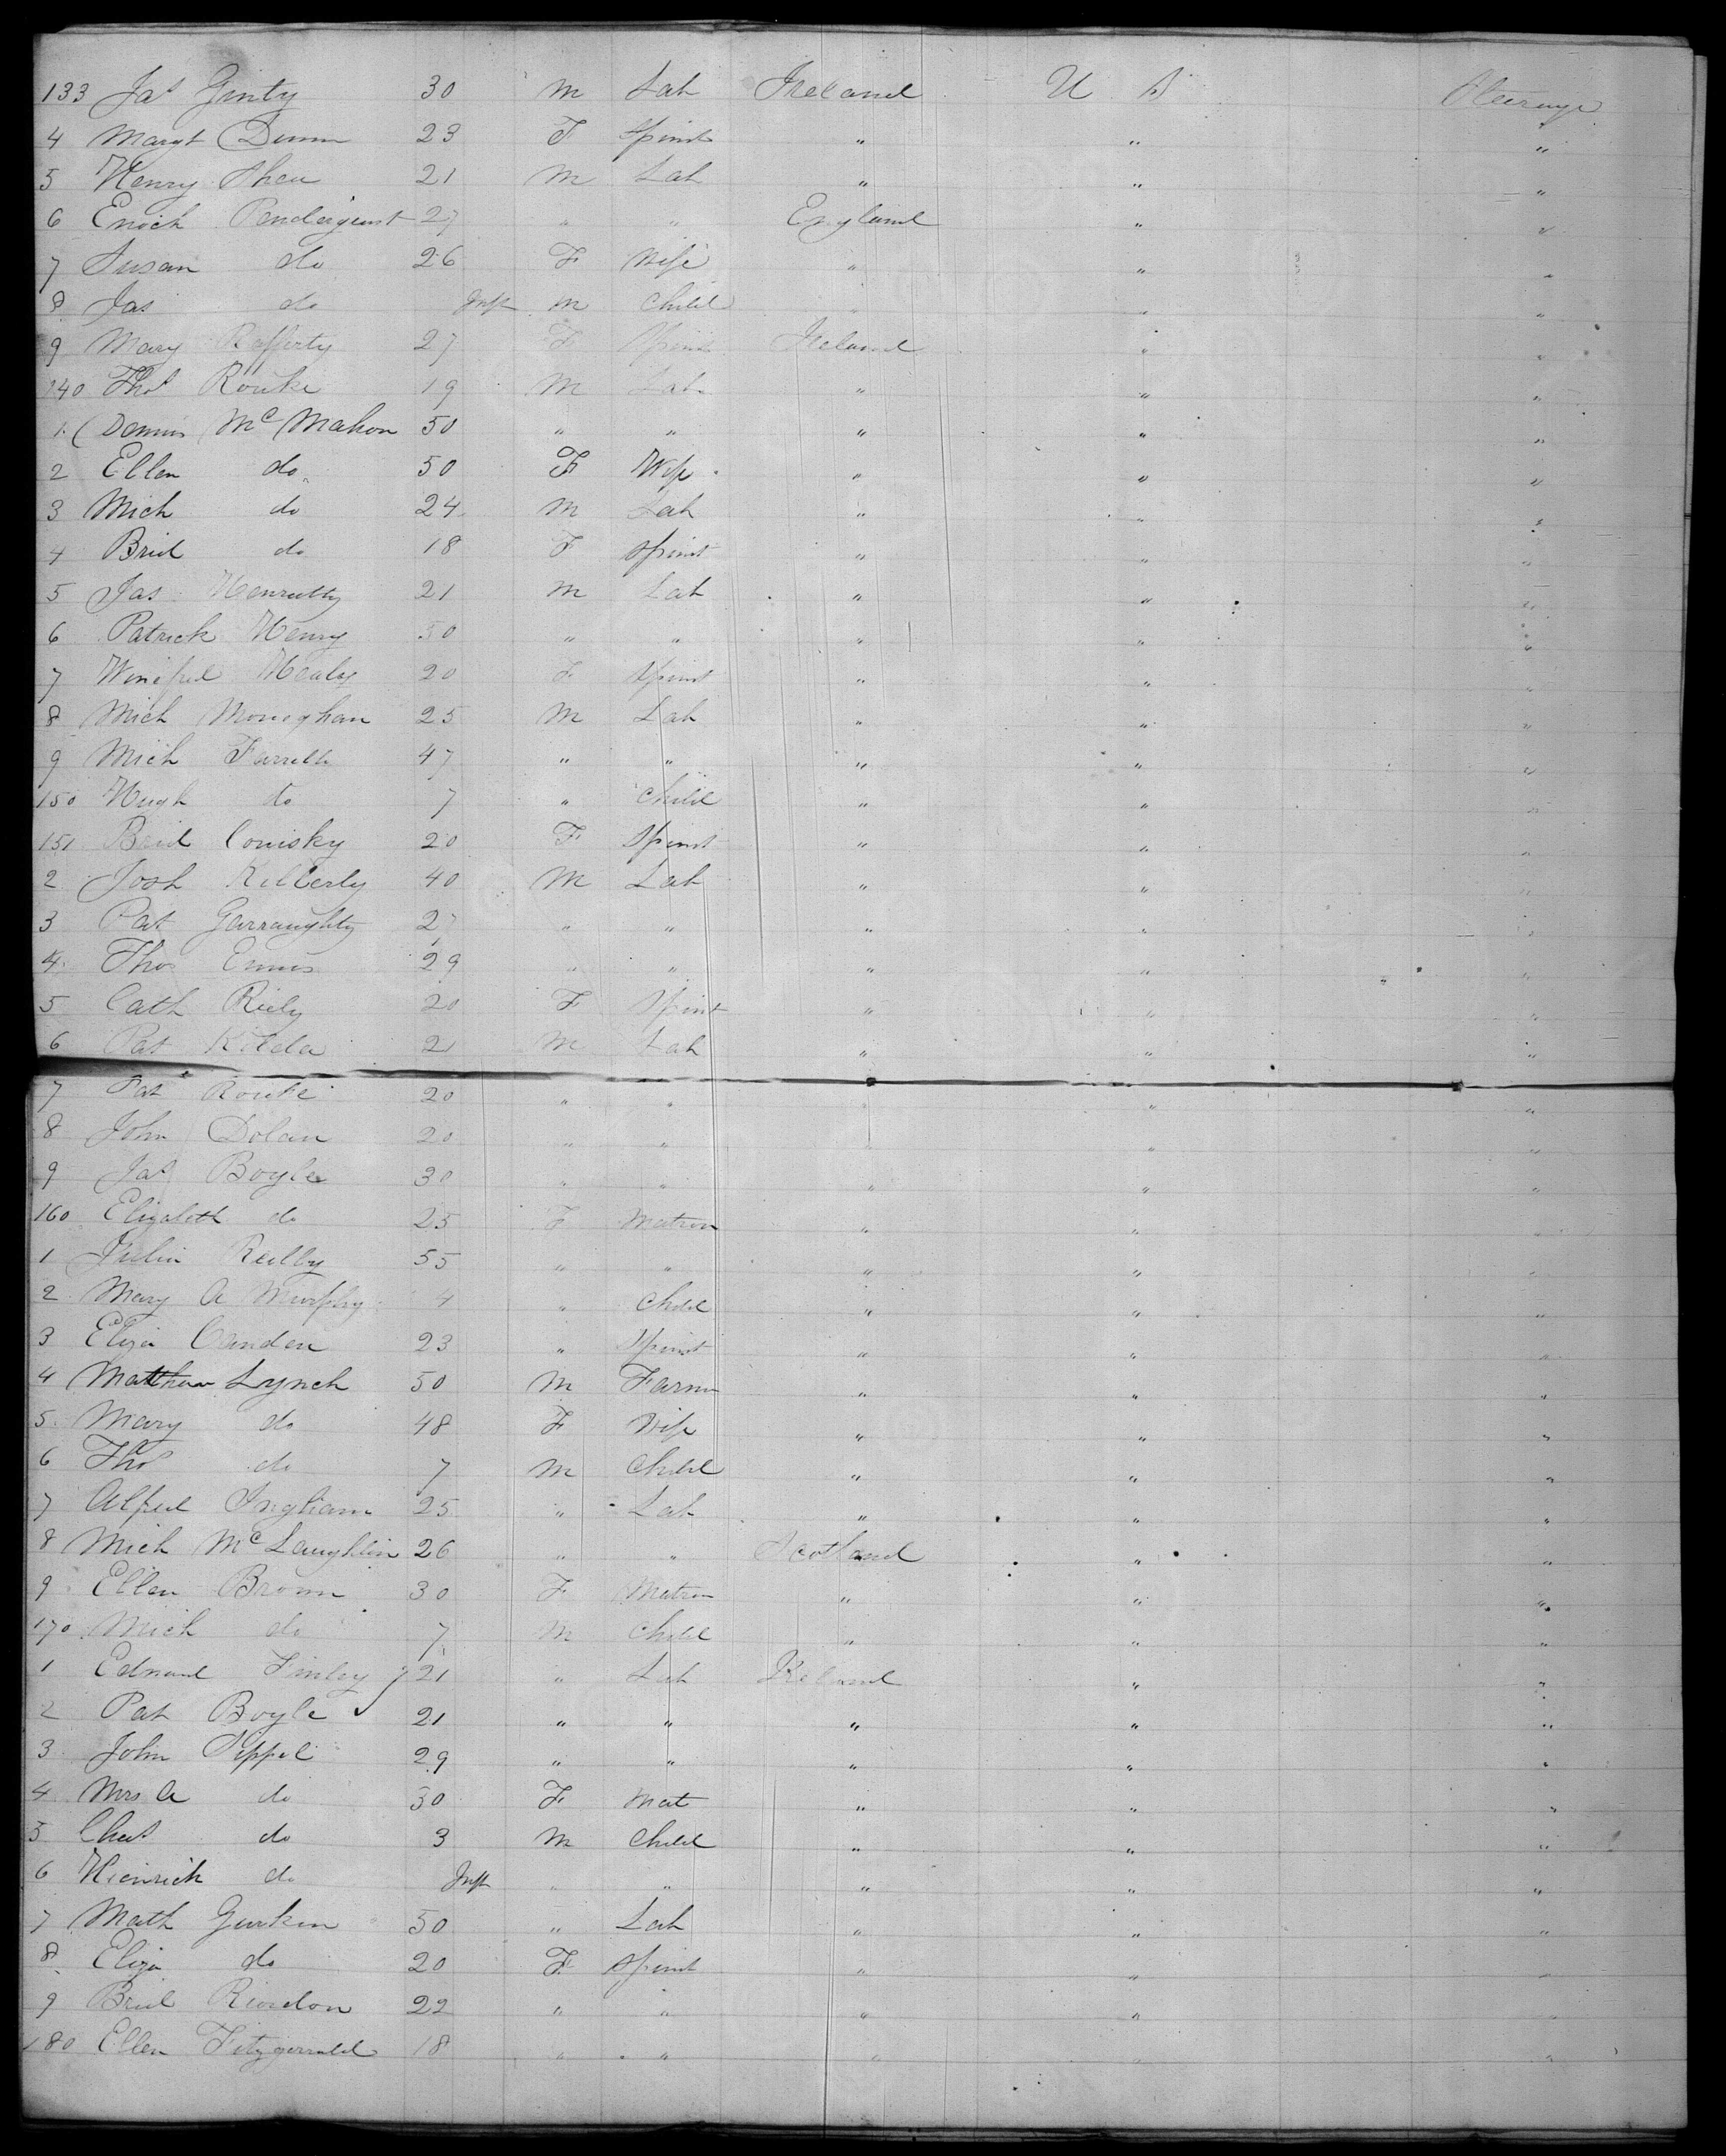 133 Jas Ginty 30 M Lab Ireland U S Steerage
4 Margt Dunn 23 F Spinst " " "
5 Henry Shea 21 M Lab " " "
6 Enoch Pendergast 27 " " England " "
7 Susan do 26 F Wife " " "
8 Jas do Inft M Child " " "
9 Mary Rafferty 27 F Spinst Ireland " "
140 Thos Rouke 19 M Lab " " "
1 Dennis McMahon 50 " " " " "
2 Ellen do 50 F Wife " " "
3 Mich do 24 M Lab " " "
4 Brid do 18 F Spinst " " "
5 Jas 21 M Lab " " "
6 Patrick Henry 50 " " " " "
7 Winifred Healy 20 F Spinst " " "
8 Mich Moneghan 25 M Lab " " "
9 Mich Farrell 47 " " " " "
150 Hugh do 7 " Child " " "
151 Brid Conisky 20 F Spinst " " "
2 Josh Killerly 40 M Lab " " "
3 Pat Garraughty 27 " " " " "
4 Thos Ennis 29 " " " " "
5 Cath Riely 20 F Spinst " " "
6 Pat Kilda 21 M Lab " " "
7 Pat Rouke 20 " " " " "
8 John Dolan 20 " " " " "
9 Jas Boyle 30 " " " " "
160 Elizabeth do 25 F Matron " " "
1 Julia Reilly 55 " " " " "
2 Mary A Murphy 4 " Child " " "
3 Eliza Canden 23 " Spinst " " "
4 Matthew Lynch 50 M Farmr " " "
5 Mary do 48 F Wife " " "
6 Thos do 7 M Child " " "
7 Alfred Ingham 25 " Lab " " "
8 Mich McLaughlin 26 " " Scotland " "
9 Ellen Brown 30 F Matron " " "
170 Mich do 7 M Child " " "
1 Edward Finley 21 " Lab Ireland " "
2 Pat Boyle 21 " " " " "
3 John Sippel 29 " " " " "
4 Mrs A do 30 F Mat " " "
5 Chas do 3 M Child " " "
6 Hienrich do Inft " " " " "
7 Math Gurken 50 " Lab " " "
8 Eliza do 20 F Spinst " " "
9 Brid Riordon 22 " " " " "
180 Ellen Fitzgerrald 18 " " " " "